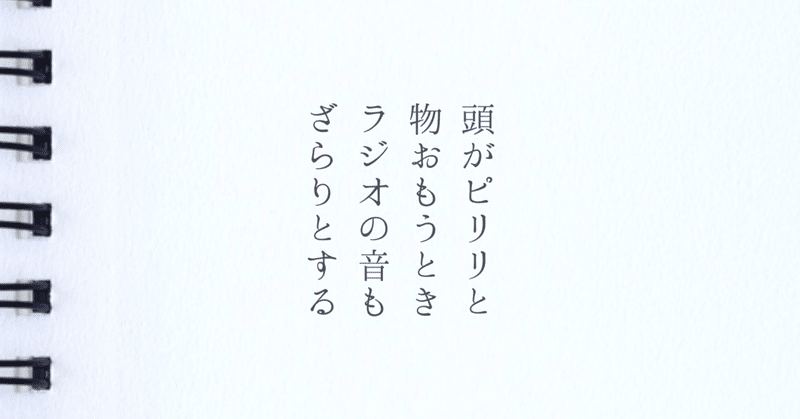 頭がピリリと
物おもうとき
ラジオの音も
ざらりとする